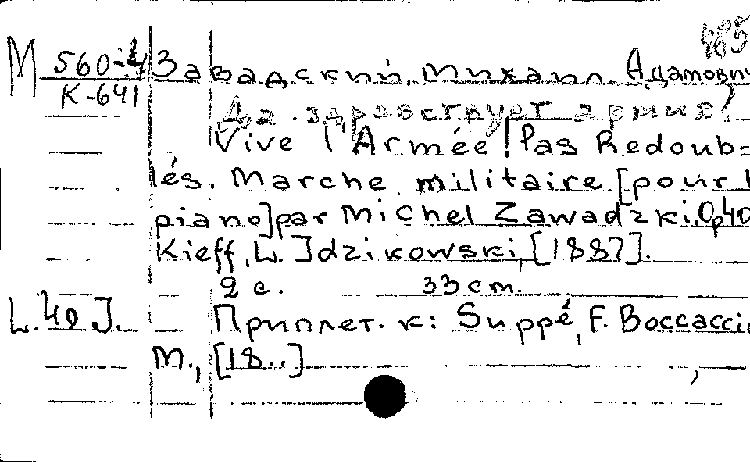 485
М 560-4 Завадский, Михаил Адамович
К-641
Да здравствует армия!
Vive l'Armée! Pas Redoub=
lés. Marche militaire [pour l
piano] par Michel Zawadzki. Op. 40
Kieff, L. Idzikowski, [1887].
2 с. 33 cm.
L. 40 J. Приплет. к: Suppé, F. Boccacci
M., [18..]